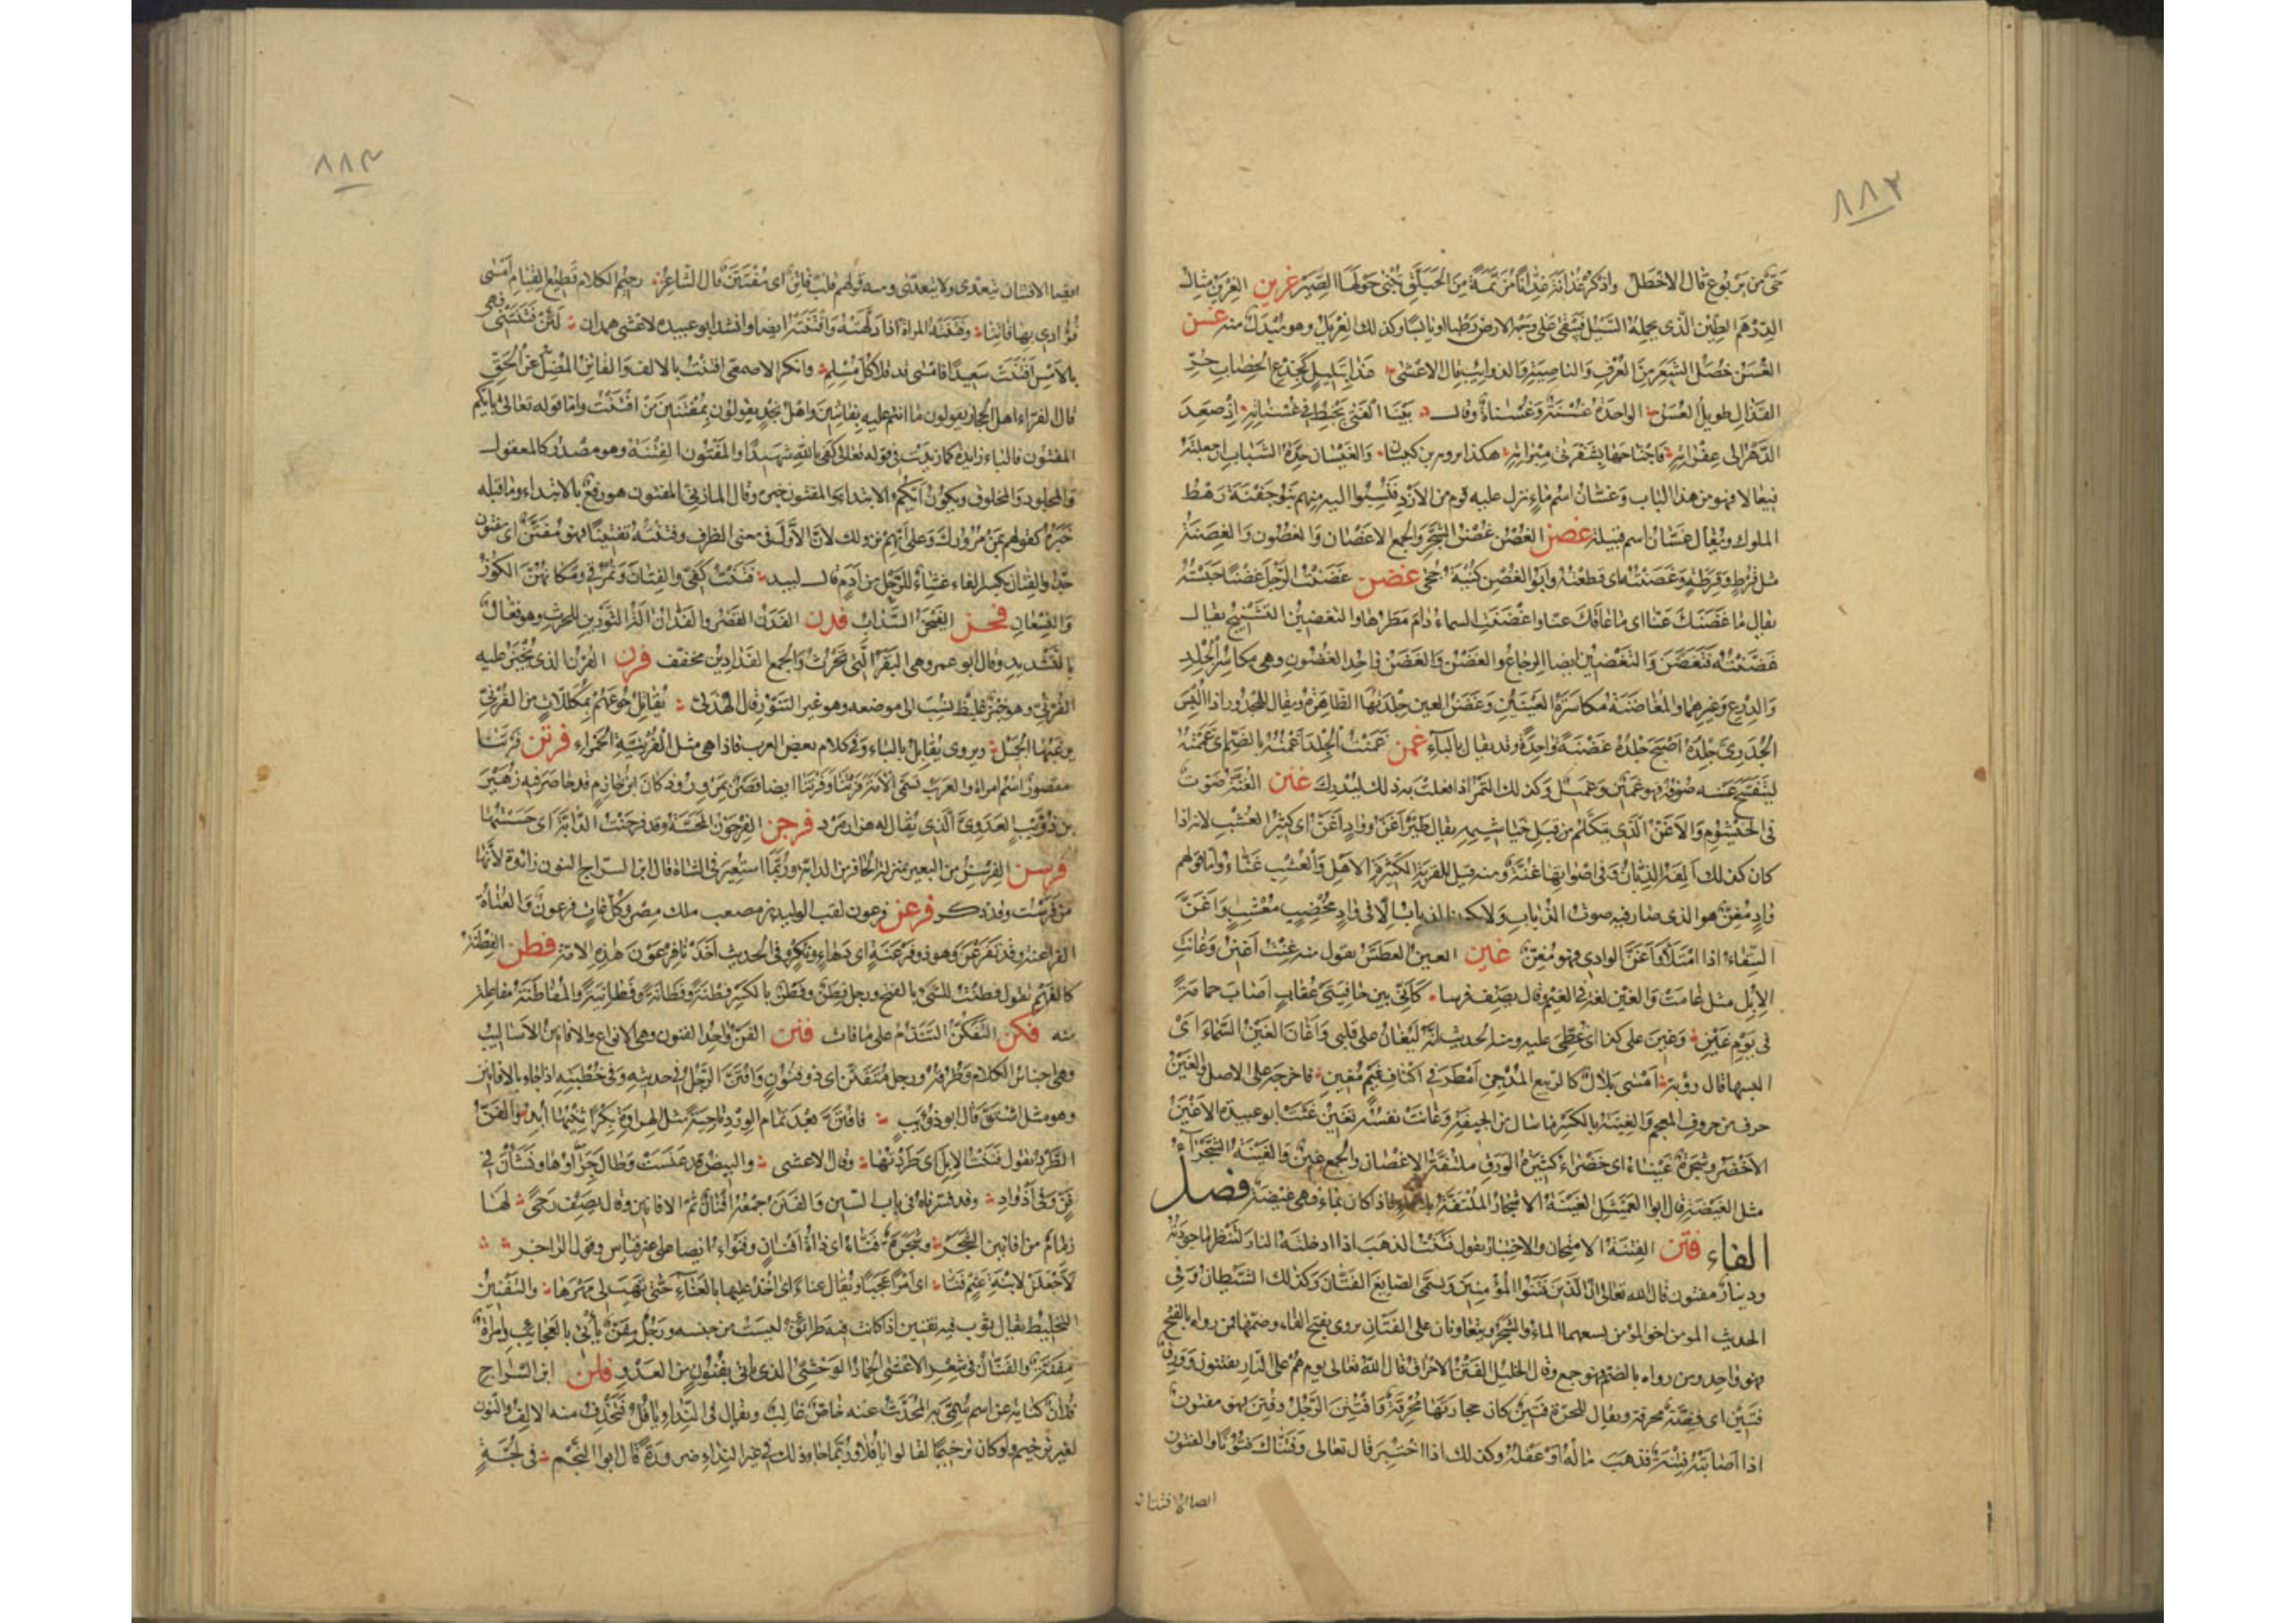 ٨٨٣
حيّ من يربوع قال الاخطل واذكر غدانة عِدّاناً مُزنّمة من الحَبَلَّق تُبنى حولها الصِّيَر غرين الغِرْيَن مثال
الدرهم الطين الذى يحمله السيل فيبقى على وجه الارض رطبا او يابسا وكذلك الغريل وهو مبدل منه غسن
الغُسَن خُصَل الشعر من العرف والناصية والذوائب قال الاعشى غدا بتليل كجذع الخضاب حرّ
القذال طويل الغسن الواحدة غسنة وغسناة وقال بينا الفتى يخبط فى غسناته اذ صعد
الدهر الى عفراته فاجتاحها بشفرتى مبراته هكذا يرويه ابن كيسان والغيسان حدّة الشباب ان جعلته
فيعالا فهو من هذا الباب وغسّان اسم ماء نزل عليه قوم من الازد فنسبوا اليه منهم بنو جفنة رهط
الملوك ويقال غسّان اسم قبيلة غصن الغصن غصن الشجر والجمع الاغصان والغصون والغصنة
مثل قرط وقرطة وغصنته اى قطعته وابو الغصن كنية جحى غضن غضنت الرجل غضنا حبسته
يقال ما غضنك عنا اى ما عاقك عنا واغضنت السماء دام مطرها والتغضين التشنيج يقال
غضنته فتغضن والتغضين ايضا الوجاع والغضن والغضن واحد الغضون وهى مكاسر الجلد
والدرع وغيرهما والمغاضنة مكاسرة العينين وغضن العين جلدتها الظاهرة ويقال للمجدور اذا البس
الجدرى جلده اصبح جلده غضنة واحدة وقد يقال بالباء غمن غمنت الجلد اغمنه بالضم اى غممته
ليتفسخ عنه صوفه فهو غمين وغميل وكذلك التمر اذا فعلت به ذلك ليدرك غنن الغنة صوت
فى الخيشوم والاغن الذى يتكلم من قبل خياشيمه يقال طير اغن وواد اغن اى كثير العشب لانه اذا
كان كذلك الفه الذبان وفى اصواتها غنة ومنه قيل للقرية الكثيرة الاهل والعشب غناء واما قولهم
واد مغن هو الذى صار فيه صوت الذباب ولا يكون الذباب الا فى واد مخصب معشب واغنّ
السقاء اذا امتلأ واغن الوادى فهو مغن غين الغين العطش تقول منه غنت اغين وغانت
الابل مثل غامت والغين لغة فى الغيم وقال يصف فرسا كأنى بين خافيتى عقاب اصاب حمامة
فى يوم غين وغين على كذا اى غطى عليه ومنه الحديث انه ليغان على قلبى واغان الغين السماء اى
البسها قال رؤبة امسى بلال كالربيع المدجن امطر فى اكناف غيم مغين فاخرجه على الاصل والغين
حرف من حروف المعجم والغينة بالكسر ما سال من الجيفة وغانت نفسه تغين غثت ابو عبيدة الاغين
الاخضر وشجرة غيناء اى خضراء كثيرة الورق ملتفة الاغصان والجمع غين والغينة الشجراء
مثل الغيضة قال ابو العميثل الغينة الاشجار الملتفة بلا ماء فاذا كان بماء فهى غيضة فصل
الفاء فتن الفتنة الامتحان والاختبار تقول فتنت الذهب اذا ادخلته النار لتنظر ما جودته
ودينار مفتون قال الله تعالى ان الذين فتنوا المؤمنين ويسمى الصايغ الفتان وكذلك الشيطان وفى
الحديث المومن اخو المومن يسعهما الماء والشجر ويتعاونان على الفتان يروى بفتح الفاء وضمها فمن رواه بالفتح
فهو واحد ومن رواه بالضم فهو جمع وقال الخليل الفتن الاحراق قال الله تعالى يوم هم على النار يفتنون وورق
فتين اى فضة محرقة ويقال للحرة فتين كان حجارتها محرقة وافتتن الرجل وفتن فهو مفتون
اذا اصابته فتنة فذهب ماله او عقله وكذلك اذا اختبر قال تعالى وفتناك فتونا والفتون
ايضا الافتتان
٨٨٤
ايضا الافتتان يتعدى ولا يتعدى ومنه قولهم قلب فاتن اى مفتتن قال الشاعر رخيم الكلام قطيع القيام امسى
فؤادى بها فاتنا وفتنته المرأة اذا دلهته وافتنته ايضا وانشد ابو عبيدة لاعشى همدان لئن فتنتنى فهى
بالامس افتنت سعيدا فامسى قد قلا كل مسلم وانكر الاصمعى افتنت بالالف والفاتن المضل عن الحق
قال الفراء اهل الحجاز يقولون ما انتم عليه بفاتنين واهل نجد يقولون بمفتنين من افتنت واما قوله تعالى بايكم
المفتون فالباء زايدة كما زيدت فى قوله تعالى كفى بالله شهيدا والمفتون الفتنة وهو مصدر كالمعقول
والمجلود والمحلوف ويكون ايكم الابتداء والمفتون خبره وقال المازنى المفتون هو رفع بالابتداء وما قبله
خبره كقولهم بمن مرورك وعلى ايهم نزولك لان الاول فى معنى الظرف وفتنته تفتينا فهو مفتن اى مفتون
جدا والفتان بكسر الفاء غشاء للرحل من ادم قال لبيد فثنيت كفى والفتان ونمرقى ومكانهن الكور
والنسعان فحن الفيجن السذاب فدن الفدن القصر والفدان آلة الثورين للحرث وهو فعال
بالتشديد وقال ابو عمرو هى البقر التى تحرث والجمع الفدادين مخفف فرن الفرن الذى يخبز عليه
الفرنى وهو خبز غليظ نسب الى موضعه وهو غير التنور قال الهذلى نقاتل جوعهم بمكللات من الفرنى
يرعبها الجميل ويروى نقابل بالباء وفى كلام بعض العرب فاذا هى مثل الفرنية الحمراء فرتن فرتنا
مقصور اسم امرأة والعرب تسمى الامة فرتنا وفرتنا ايضا قصر بمرو الروذ كان ابن خازم قد حاصر فيه زهير
بن ذؤيب العدوى الذى يقال له هزارمرد فرجن الفرجون المحسة وقد فرجنت الدابة اى حسستها
فرسن الفرسن من البعير بمنزلة الحافر من الدابة وربما استعير فى الشاة قال ابن السراج النون زائدة لانها
من فرست وقد ذكر فرعن فرعون لقب الوليد بن مصعب ملك مصر وكل عات فرعون والعتاة
الفراعنة وقد تفرعن وهو ذو فرعنة اى دهاء ونكر وفى الحديث اخذنا فرعون هذه الامة فطن الفطنة
كالفهم تقول فطنت للشىء بالفتح ورجل فطن وفطن بالكسر فطنة وفطانة وفطانية والمفاطنة مفاعلة
منه فكن التفكن التندم على ما فات فنن الفن واحد الفنون وهى الانواع والافانين الاساليب
وهى اجناس الكلام وطرقه ورجل متفنن اى ذو فنون وافتن الرجل فى حديثه وفى خطبته اذا جاء بالافانين
وهو مثل اشتق قال ابو ذؤيب فافتنّ بعد تمام الورد ناجية مثل الهراوة بكرا ثنيها ابد والفن
الطرد تقول فننت الابل اى طردتها وقال الاعشى والبيض قد عنست وطال جراؤها ونشأن فى
فنّ وفى اذواد وقد فسرناه فى باب السين والفنن جمعه افنان ثم الافانين وقال يصف رحى لها
زمام من افانين الشجر وشجرة فناء اى ذات افنان وفنواء ايضا على غير قياس وقول الراجز
لاجعلن لابنة عثم فنا اى امرا عجبا ويقال عناء اى آخذ عليها بالعناء حتى تهب لى مهرها والتفنين
التخليط يقال ثوب فيه تفنين اذا كانت فيه طرائق ليست من جنسه ورجل مفن يأتى بالعجايب وامرأة
مفنة والفنان فى شعر الاعشى الحمار الوحشى الذى ياتى بفنون من العدو فلن ابن السراج
فلان كناية عن اسم سمى به المحدث عنه خاص غالب ويقال فى النداء يا فل فتحذف منه الالف والنون
لغير ترخيم ولو كان ترخيما لقالوا يا فلا وربما جاء ذلك فى غير النداء ضرورة قال ابو النجم فى لجة